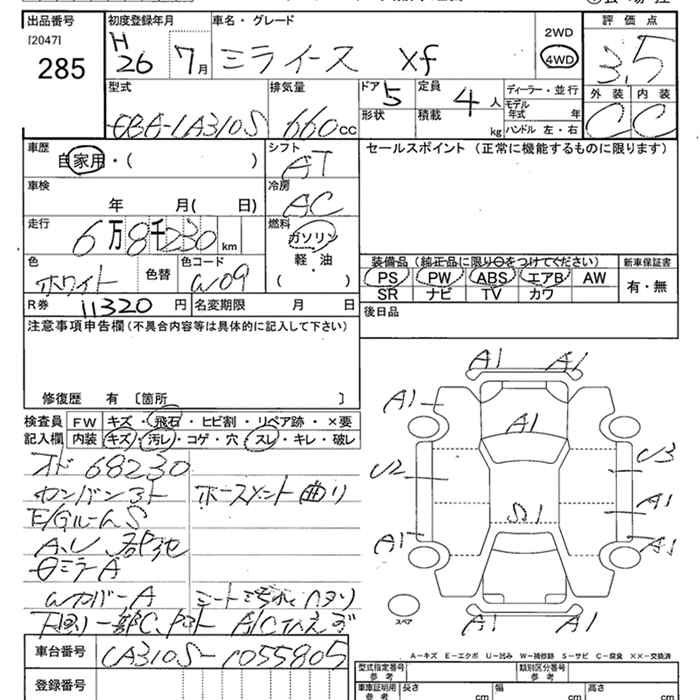 出品番号 初度登録年月 車名・グレード 2WD 評価点
[2047] H 4WD 3.5
285 26 7月 ミライース Xf 外装 内装
型式 排気量 ドア 定員 ディーラー・並行 C C
EBA-LA310S 660cc 5 4人 モデル年式 年
形状 積載 kg ハンドル 左・右
車歴 シフト セールスポイント (正常に機能するものに限ります)
自家用・( ) AT
車検 冷房
年 月( 日) AC
走行 燃料
6万8千230km ガソリン
軽・油
色 色替 色コード ( )
ホワイト W09
装備品(純正品に限り○をつけてください) 新車保証書
PS PW ABS エアB AW 有・無
SR ナビ TV カワ
R券 11320円 名変期限 月 日 後日品
注意事項申告欄(不具合内容等は具体的に記入して下さい)
修復歴 有 〔箇所 〕
検査員 FW キズ・飛石・ヒビ割・リペア跡・×要
記入欄 内装 キズ・汚レ・コゲ・穴・スレ・キレ・破レ
オド 68230
ホースメント曲り
E/GルームS
ミラーA
WカバーA
下廻り一部C
A1 A1
A1 A1
U2 U3
A1
S1
A1 A1
A1 A1
スペア
A-キズ E-エクボ U-凹み W-補修跡 S-サビ C-腐食 ××-交換済
車台番号 LA310S-1055805
型式指定番号 参考 類別区分番号 参考
登録番号 車庫証明用 参考 長さ cm 幅 cm 高さ cm